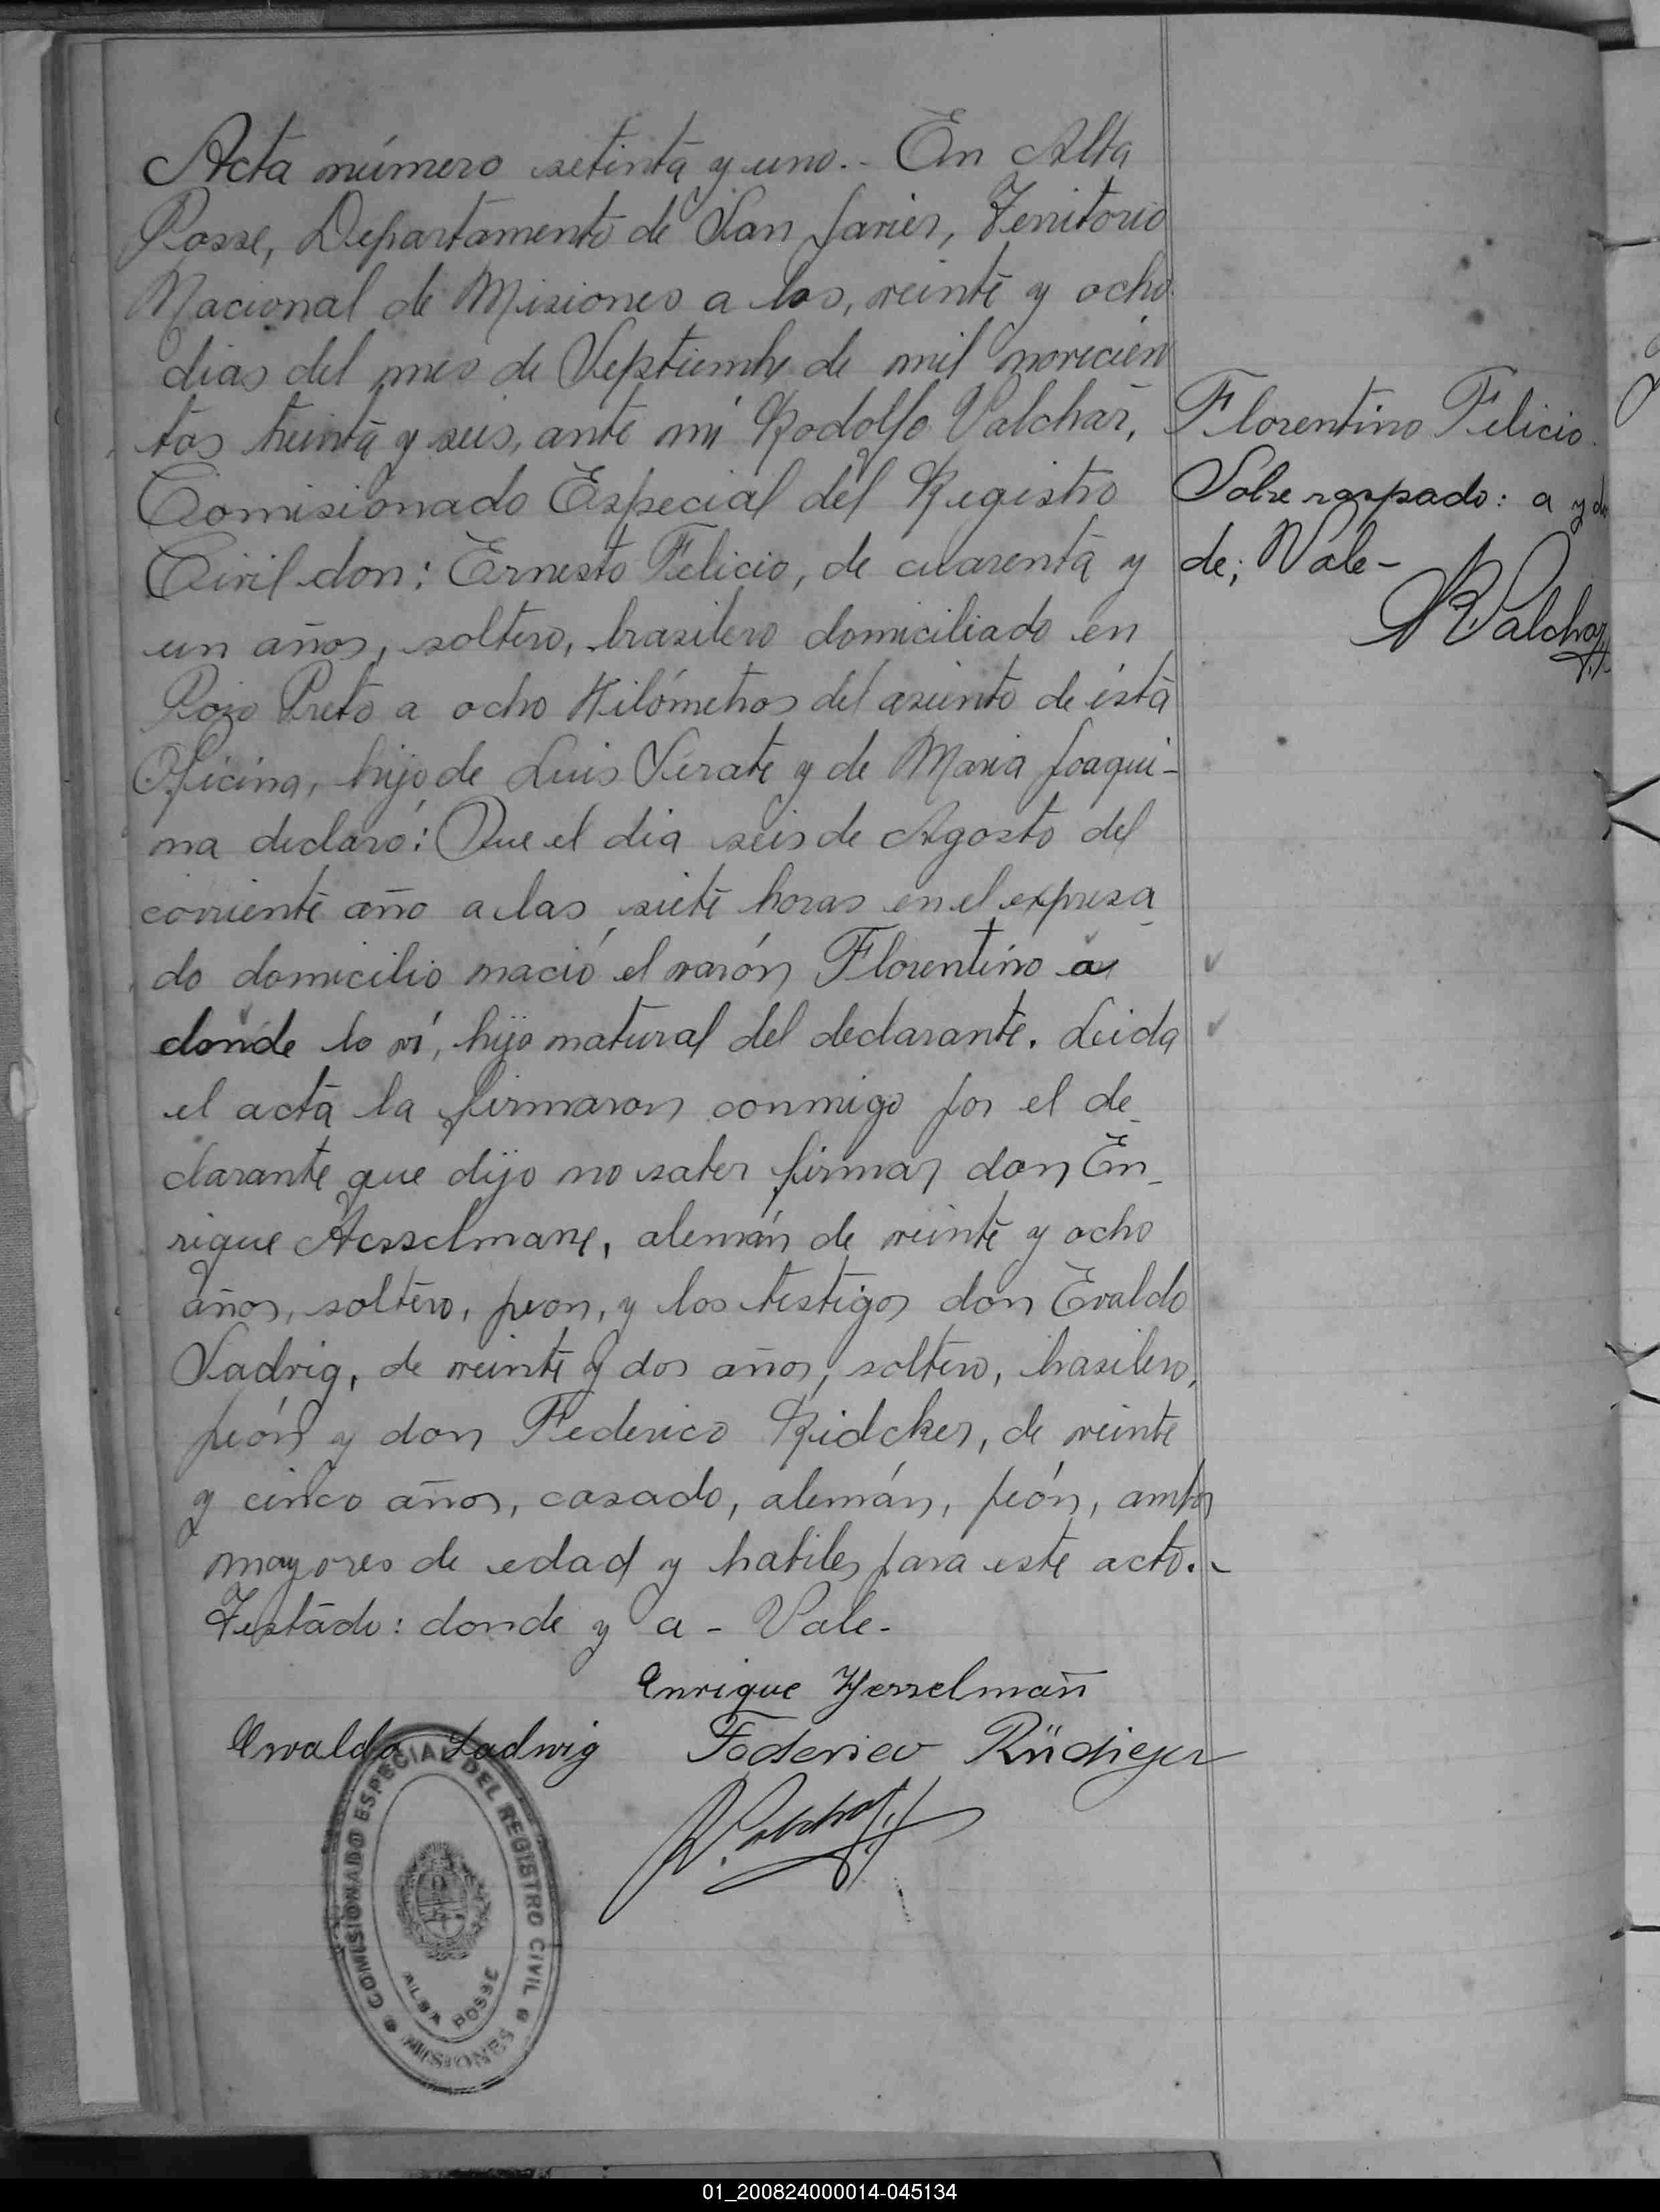 Acta número setinta y uno.- En Alta
Posse, Departamento de San Javier, Territorio
Nacional de Misiones a los, veinte y ocho
dias del mes de Septiembre de mil novecien
tos treinta y seis, ante mí Rodolfo Valchar,
Comisionado Especial del Registro
Civil don: Ernesto Felicio, de cuarenta y
un años, soltero, brasilero domiciliado en
Pozo Preto a ocho Kilómetros del asiento de ésta
Oficina, hijo de Luis Serate y de Maria Joaqui-
na declaró: Que el dia seis de Agosto del
corriente año a las siete horas en el expresa
do domicilio nació el varón Florentino a
donde lo ví, hijo natural del declarante. Leida
el acta la firmaron conmigo por el de
clarante que dijo no saber firmar don En-
rique Hesselmann, alemán de veinte y ocho
años, soltero, peon, y los testigos don Evaldo
Ladvig, de veinte y dos años, soltero, brasilero,
peón y don Federico Ridcker, de veinte
y cinco años, casado, alemán, peón, ambos
mayores de edad y habiles para este acto.-
Testado: donde y a - Vale-
Enrique Hesselmann
Ewaldo Ladwig Federico Rüdiger
R. Valchar
Florentino Felicio.
Sobre raspado: a y
de; Vale-
R Valchar
COMISIONADO ESPECIAL DEL REGISTRO CIVIL
ALBA POSSE
MISIONES
01_200824000014-045134